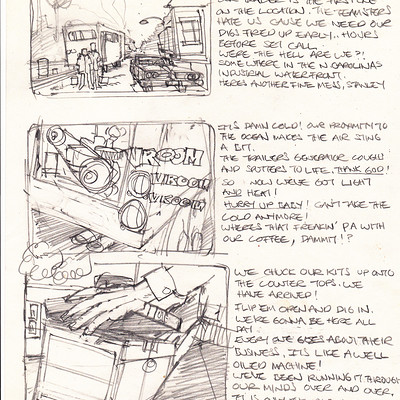 ON THE LOCATION. THE TEAMSTERS
HATE US CAUSE WE NEED OUR
DIGS FIRED UP EARLY.. HOURS
BEFORE SET CALL.
WERE THE HELL ARE WE?!
SOMEWHERE IN THE N CAROLINAS
INDUSTRIAL WATERFRONT.
HERES ANOTHER FINE MESS, STANLEY
IT'S DAMN COLD! OUR PROXIMITY TO
THE OCEAN MAKES THE AIR STING
A BIT.
THE TRAILER'S GENERATOR COUGHS
AND SPUTTERS TO LIFE, THANK GOD!
SO NOW WE'VE GOT LIGHT
AND HEAT!
HURRY UP BABY! CAN'T TAKE THE
COLD ANYMORE!
WHERE'S THAT FREAKIN' PA WITH
OUR COFFEE, DAMMIT!?
VROOM
VROOM
VROOM
WE CHUCK OUR KITS UP ONTO
THE COUNTER TOPS. WE
HAVE ARRIVED!
FLIP EM OPEN AND DIG IN.
WE'RE GONNA BE HERE ALL
DAY.
EVERY ONE GOES ABOUT THEIR
BUSINESS, IT'S LIKE A WELL
OILED MACHINE!
WE'VE BEEN RUNNING IT THROUGH
OUR MINDS OVER AND OVER,